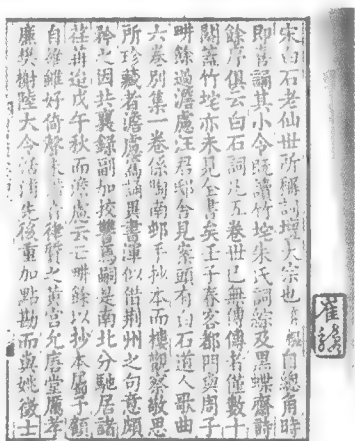 宋白石老仙世所稱詞壇大宗也自總角時
即喜誦其小令既讀竹垞朱氏詞綜及黑蝶齋詩
餘序俱云白石詞凡五卷世已無傳傳者僅數十
闋蓋竹垞亦未見全書矣壬子春客都門與周子
畊餘過澹慮汪君邸舍見案頭有白石道人歌曲
六卷別集一卷係陶南邨手抄本而樓敬思
所珍藏者澹慮為異書渾似借荆州之句意頗
矜之因共襄錄副加挍讐焉嗣是南北分馳居諸
荏苒迨戊午秋而澹慮云亡畊餘以抄本屬予顧
自雖雅好倚聲未律質之黃宮允唐堂厲孝
廉樊榭陸大令恬浦先後重加點勘而與姚徵士